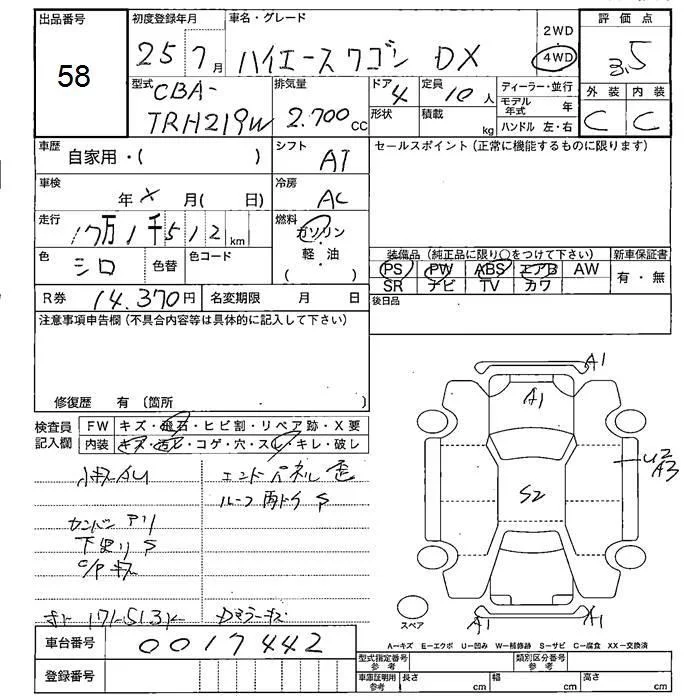 出品番号
58
初度登録年月
25 7月
車名・グレード
ハイエースワゴン DX
2WD
4WD
評価点
3.5
外装 内装
C C
型式
CBA-
TRH219W
排気量
2.700cc
ドア
4
形状
定員
10人
積載
kg
ディーラー・並行
モデル年式 年
ハンドル 左・右
車歴
自家用・( )
シフト
AT
セールスポイント(正常に機能するものに限ります)
車検
年 X 月( 日)
冷房
AC
走行
17万1千512km
燃料
ガソリン
・
軽・油
( )
色
シロ
色替
色コード
装備品(純正品に限り○をつけて下さい)
新車保証書
PS PW ABS エアB AW
SR ナビ TV カワ
有・無
R券 14.370円
名変期限 月 日
後日品
注意事項申告欄(不具合内容等は具体的に記入して下さい)
修復歴 有(箇所 )
検査員
記入欄
FW キズ・飛石・ヒビ割・リペア跡・X要
内装 キズ・汚レ・コゲ・穴・スレ・キレ・破レ
小キズAU
エンドパネル歪
ルーフ雨トイS
カンバンアリ
下廻りS
C/Pキズ
A1
A1
U2
A3
S2
A1
A1
スペア
A-キズ E-エクボ U-凹み W-補修跡 S-サビ C-腐食 XX-交換済
車台番号
0017442
登録番号
型式指定番号
参考
類別区分番号
参考
車庫証明用
参考
長さ cm
幅 cm
高さ cm